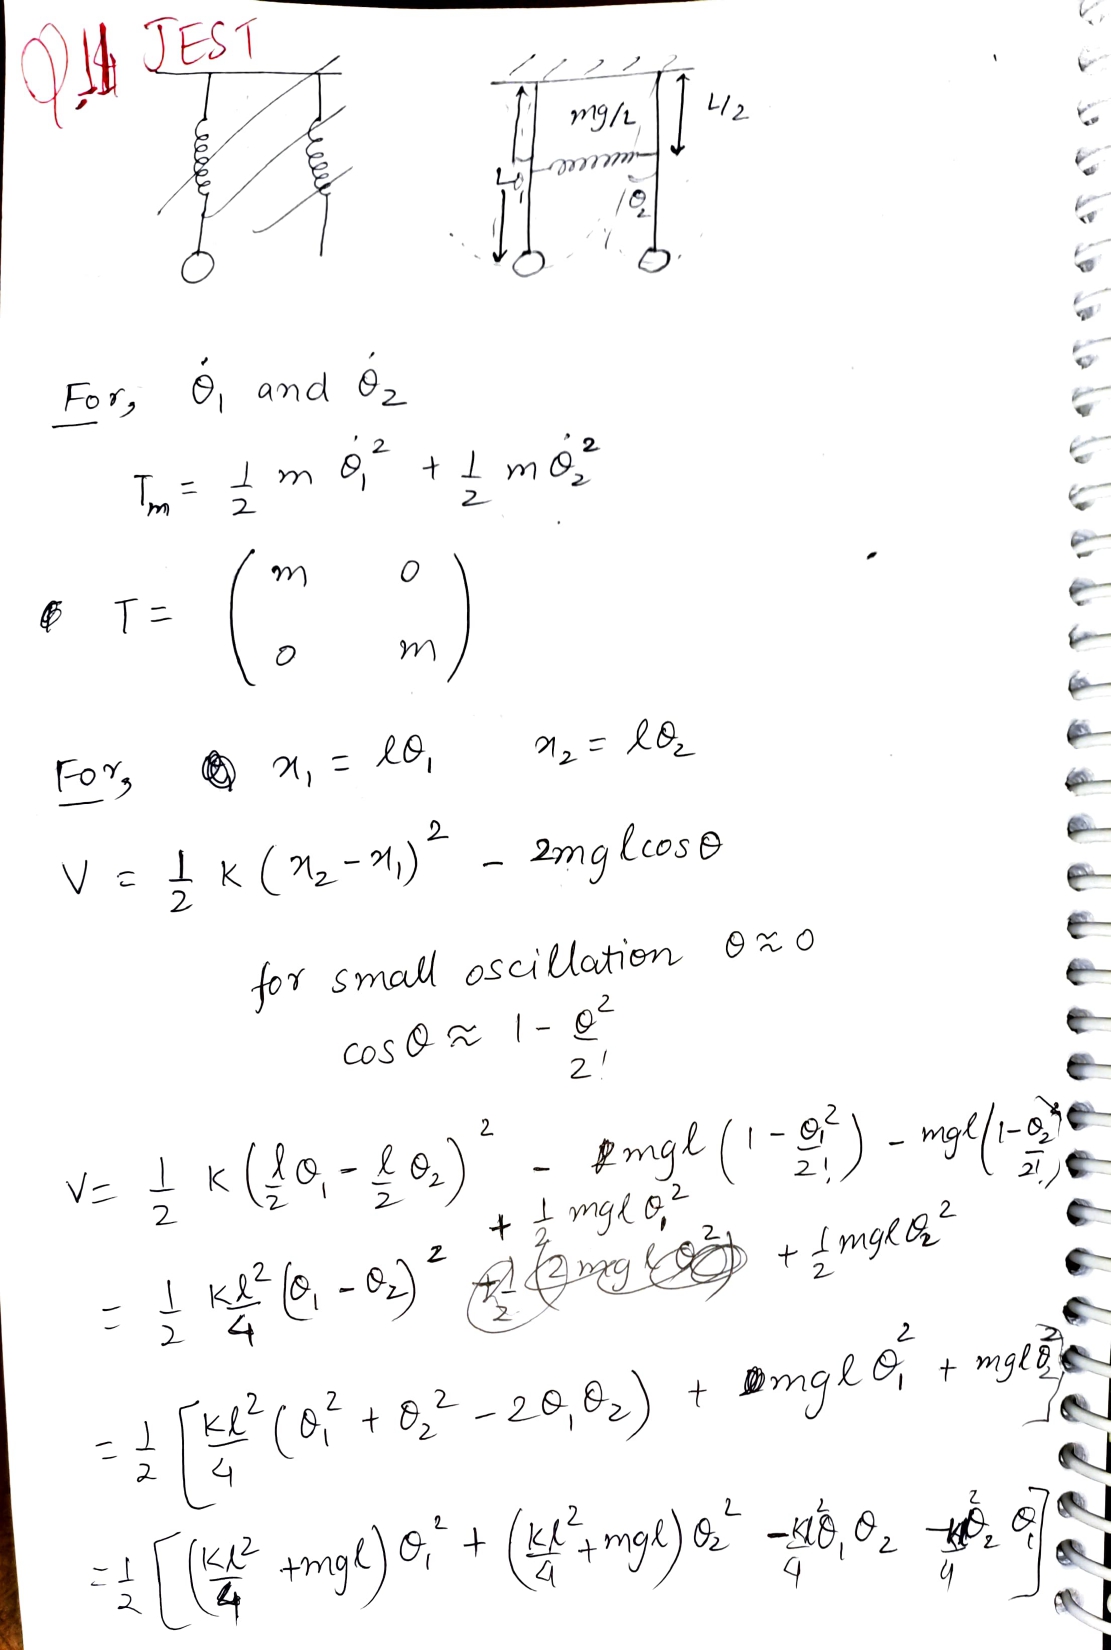 Q.11 JEST
mg/2
L/2
L
θ₁
θ₂
For, θ̇₁ and θ̇₂
Tₘ = 1/2 m θ̇₁² + 1/2 m θ̇₂²
T = ( m 0
0 m )
For, x₁ = lθ₁ x₂ = lθ₂
V = 1/2 K (x₂ - x₁)² - 2mglcosθ
for small oscillation θ ≈ 0
cosθ ≈ 1 - θ²/2!
V = 1/2 K (l/2 θ₁ - l/2 θ₂)² - mgl (1 - θ₁²/2!) - mgl (1 - θ₂²/2!)
= 1/2 Kl²/4 (θ₁ - θ₂)² + 1/2 mglθ₁² + 1/2 mglθ₂²
= 1/2 [Kl²/4 (θ₁² + θ₂² - 2θ₁θ₂) + mglθ₁² + mglθ₂²]
= 1/2 [(Kl²/4 + mgl) θ₁² + (Kl²/4 + mgl) θ₂² - Kl²/4 θ₁θ₂ - Kl²/4 θ₂θ₁]